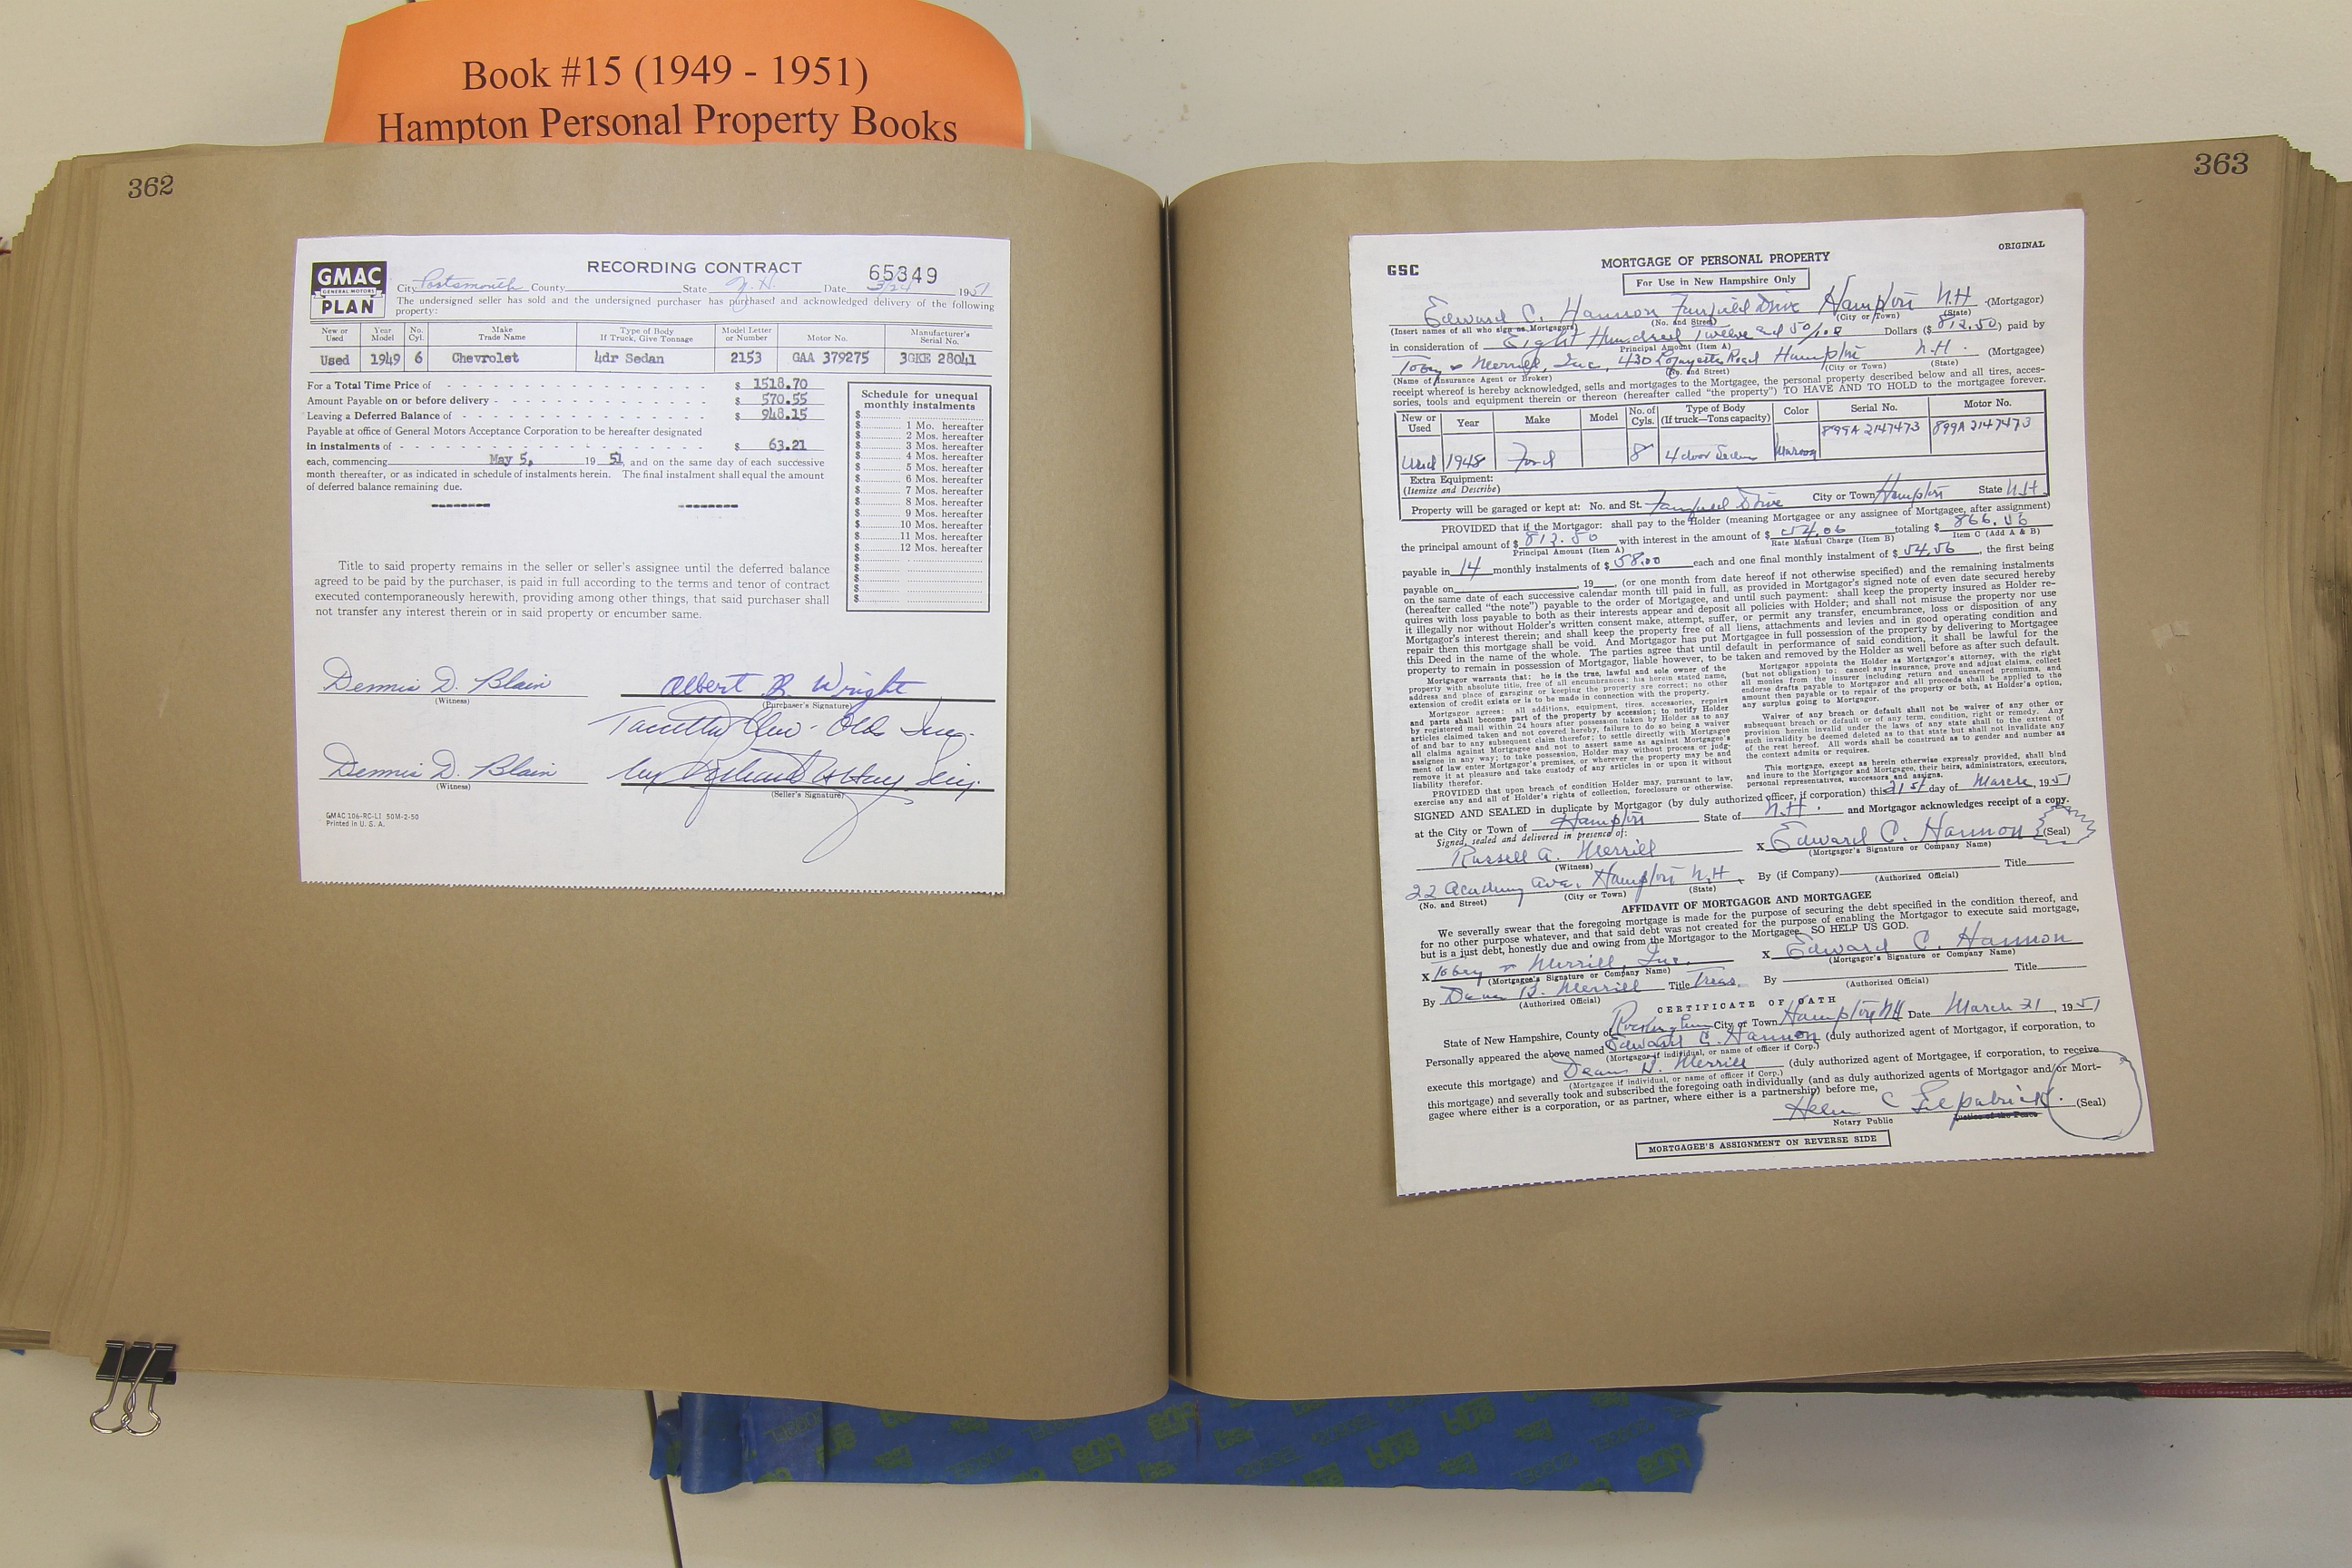 Book #15 (1949 - 1951)
Hampton Personal Property Books
362
GMAC
GENERAL MOTORS
PLAN
RECORDING CONTRACT
65349
City Portsmouth County State N.H. Date 1951
The undersigned seller has sold and the undersigned purchaser has purchased and acknowledged delivery of the following
property:
New or Used Year Model No. Cyl. Make Trade Name Type of Body If Truck, Give Tonnage Model Letter or Number Motor No. Manufacturer's Serial No.
Used 1949 6 Chevrolet 4dr Sedan 2153 GAA 379275 3GKE 28041
For a Total Time Price of $ 1518.70
Amount Payable on or before delivery $ 570.55
Leaving a Deferred Balance of $ 948.15
Payable at office of General Motors Acceptance Corporation to be hereafter designated
in instalments of $ 63.21
each, commencing May 5, 19 51, and on the same day of each successive
month thereafter, or as indicated in schedule of instalments herein. The final instalment shall equal the amount
of deferred balance remaining due.
Schedule for unequal
monthly instalments
$ 1 Mo. hereafter
$ 2 Mos. hereafter
$ 3 Mos. hereafter
$ 4 Mos. hereafter
$ 5 Mos. hereafter
$ 6 Mos. hereafter
$ 7 Mos. hereafter
$ 8 Mos. hereafter
$ 9 Mos. hereafter
$ 10 Mos. hereafter
$ 11 Mos. hereafter
$ 12 Mos. hereafter
$
$
$
$
Title to said property remains in the seller or seller's assignee until the deferred balance
agreed to be paid by the purchaser, is paid in full according to the terms and tenor of contract
executed contemporaneously herewith, providing among other things, that said purchaser shall
not transfer any interest therein or in said property or encumber same.
Dennis D. Blain Albert B. Wright
(Witness) (Purchaser's Signature)
Chev-Olds Inc.
Dennis D. Blain by
(Witness) (Seller's Signature)
GMAC 106-RC-LI 50M-2-50
Printed in U. S. A.
363
ORIGINAL
GSC
MORTGAGE OF PERSONAL PROPERTY
For Use in New Hampshire Only
Edward C. Hannon Fairfield Drive Hampton N.H. (Mortgagor)
(Insert names of all who sign as Mortgagors) (No. and Street) (City or Town) (State)
in consideration of Eight Hundred Twelve and 50/100 Dollars ($ 812.50) paid by
Principal Amount (Item A)
Tobey & Merrill, Inc. 430 Lafayette Road Hampton N.H. (Mortgagee)
(Name of Insurance Agent or Broker) (No. and Street) (City or Town) (State)
receipt whereof is hereby acknowledged, sells and mortgages to the Mortgagee, the personal property described below and all tires, acces-
sories, tools and equipment therein or thereon (hereafter called "the property") TO HAVE AND TO HOLD to the mortgagee forever.
New or Used Year Make Model No. of Cyls. Type of Body (If truck—Tons capacity) Color Serial No. Motor No.
Used 1948 Ford 8 4 door Sedan Maroon 899A 2147473 899A 2147473
Extra Equipment:
(Itemize and Describe)
Property will be garaged or kept at: No. and St. Fairfield Drive City or Town Hampton State N.H.
PROVIDED that if the Mortgagor: shall pay to the Holder (meaning Mortgagee or any assignee of Mortgagee, after assignment)
the principal amount of $ 812.50 with interest in the amount of $ 54.06 totaling $ 866.56
Principal Amount (Item A) Rate Manual Charge (Item B) Item C (Add A & B)
payable in 14 monthly instalments of $ 58.00 each and one final monthly instalment of $ 54.56, the first being
payable on , 19 , (or one month from date hereof if not otherwise specified) and the remaining instalments
on the same date of each successive calendar month till paid in full, as provided in Mortgagor's signed note of even date secured hereby
(hereafter called "the note") payable to the order of Mortgagee, and until such payment: shall keep the property insured as Holder re-
quires with loss payable to both as their interests appear and deposit all policies with Holder; and shall not misuse the property nor use
it illegally nor without Holder's written consent make, attempt, suffer, or permit any transfer, encumbrance, loss or disposition of any
Mortgagor's interest therein; and shall keep the property free of all liens, attachments and levies and in good operating condition and
repair then this mortgage shall be void. And Mortgagor has put Mortgagee in full possession of the property by delivering to Mortgagee
this Deed in the name of the whole. The parties agree that until default in performance of said condition, it shall be lawful for the
property to remain in possession of Mortgagor, liable however, to be taken and removed by the Holder as well before as after such default.
Mortgagor warrants that: he is the true, lawful and sole owner of the
property with absolute title, free of all encumbrances; his herein stated name,
address and place of garaging or keeping the property are correct; no other
extension of credit exists or is to be made in connection with the property.
Mortgagor agrees: all additions, equipment, tires, accessories, repairs
and parts shall become part of the property by accession; to notify Holder
by registered mail within 24 hours after possession taken by Holder as to any
articles claimed taken and not covered hereby, failure to do so being a waiver
of and bar to any subsequent claim therefor; to settle directly with Mortgagee
all claims against Mortgagee and not to assert same as against Mortgagee's
assignee in any way; to take possession, Holder may without process or judg-
ment of law enter Mortgagor's premises, or wherever the property may be and
remove it at pleasure and take custody of any articles in or upon it without
liability therefor.
PROVIDED that upon breach of condition Holder may, pursuant to law,
exercise any and all of Holder's rights of collection, foreclosure or otherwise.
Mortgagor appoints the Holder as Mortgagor's attorney, with the right
(but not obligation) to: cancel any insurance, prove and adjust claims, collect
all monies from the insurer including return and unearned premiums, and
endorse drafts payable to Mortgagor and all proceeds shall be applied to the
amount then payable or to repair of the property or both, at Holder's option,
any surplus going to Mortgagor.
Waiver of any breach or default shall not be waiver of any other or
subsequent breach or default or of any term, condition, right or remedy. Any
provision herein invalid under the laws of any state shall to the extent of
such invalidity be deemed deleted as to that state but shall not invalidate any
of the rest hereof. All words shall be construed as to gender and number as
the context admits or requires.
This mortgage, except as herein otherwise expressly provided, shall bind
and inure to the Mortgagor and Mortgagee, their heirs, administrators, executors,
personal representatives, successors and assigns.
SIGNED AND SEALED in duplicate by Mortgagor (by duly authorized officer, if corporation) this 21st day of March, 1951
at the City or Town of Hampton State of N.H. and Mortgagor acknowledges receipt of a copy.
Signed, sealed and delivered in presence of:
Russell A. Merrill X Edward C. Hannon (Seal)
(Witness) (Mortgagor's Signature or Company Name)
22 Academy Ave. Hampton N.H. By (if Company) Title
(No. and Street) (City or Town) (State) (Authorized Official)
AFFIDAVIT OF MORTGAGOR AND MORTGAGEE
We severally swear that the foregoing mortgage is made for the purpose of securing the debt specified in the condition thereof, and
for no other purpose whatever, and that said debt was not created for the purpose of enabling the Mortgagor to execute said mortgage,
but is a just debt, honestly due and owing from the Mortgagor to the Mortgagee. SO HELP US GOD.
X Tobey & Merrill, Inc. X Edward C. Hannon
(Mortgagee's Signature or Company Name) (Mortgagor's Signature or Company Name)
By Dean B. Merrill Title Treas. By Title
(Authorized Official) (Authorized Official)
CERTIFICATE OF OATH
State of New Hampshire, County of Rockingham City or Town Hampton NH Date March 21, 1951
Personally appeared the above named Edward C. Hannon (duly authorized agent of Mortgagor, if corporation, to
(Mortgagor if individual, or name of officer if Corp.)
execute this mortgage) and Dean Merrill (duly authorized agent of Mortgagee, if corporation, to receive
(Mortgagee if individual, or name of officer if Corp.)
this mortgage) and severally took and subscribed the foregoing oath individually (and as duly authorized agents of Mortgagor and/or Mort-
gagee where either is a corporation, or as partner, where either is a partnership) before me,
Helen C Fitzpatrick. (Seal)
Notary Public Justice of the Peace
MORTGAGEE'S ASSIGNMENT ON REVERSE SIDE